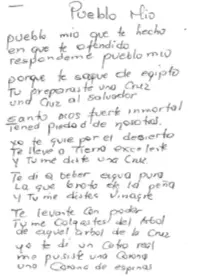 Pueblo Mio
pueblo mio que te hecho
en que te ofendido
respondeme pueblo mio
porque te saque de egipto
Tu preparaste una Cruz
una Cruz al salvador
Santo Dios fuerte inmortal
Tened piedad de nosotros.
yo te guie por el desierto
Te lleve a Tierra excelente
y Tu me diste una Cruz
Te di a beber agua pura
La que broto de la peña
y Tu me distes vinagre
Te levante con poder
Tu me colgastes del Arbol
de aquel arbol de la Cruz
yo te di un Cetro real
mas pusiste una Corona
una Corona de espinas